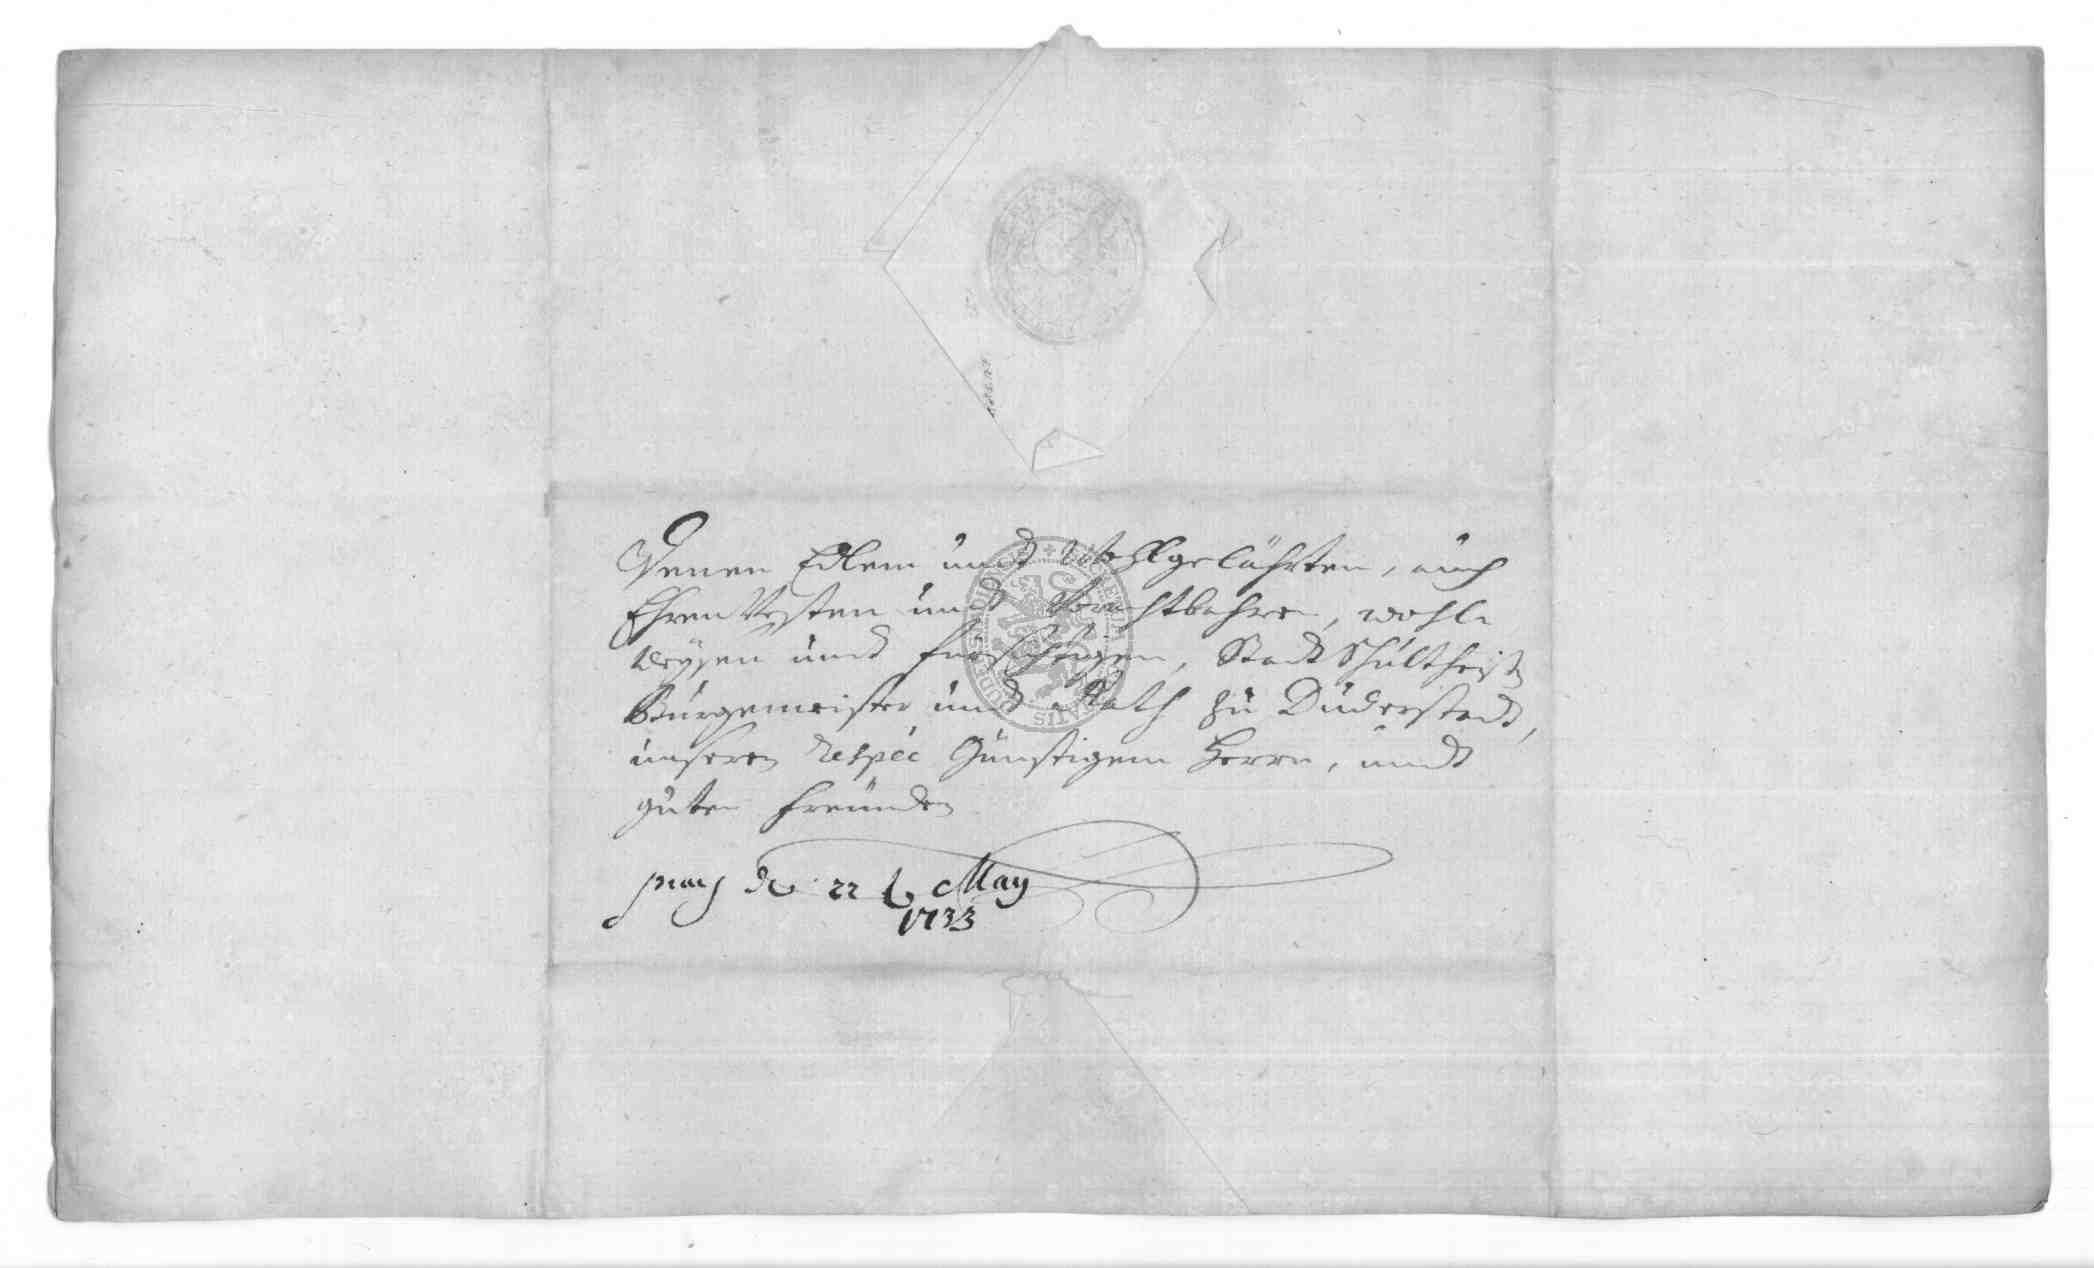 Denen Edlem undt Wohlgelährten, auch
Ehren Vesten undt Vorachtbahren, wohl-
weysen und fursichtigen, Stadt Schultheiß
Bürgemeister undt Rath zu Duderstadt,
unseren respéc Günstigem Herrn, undt
guten freunden
22 t May
1733